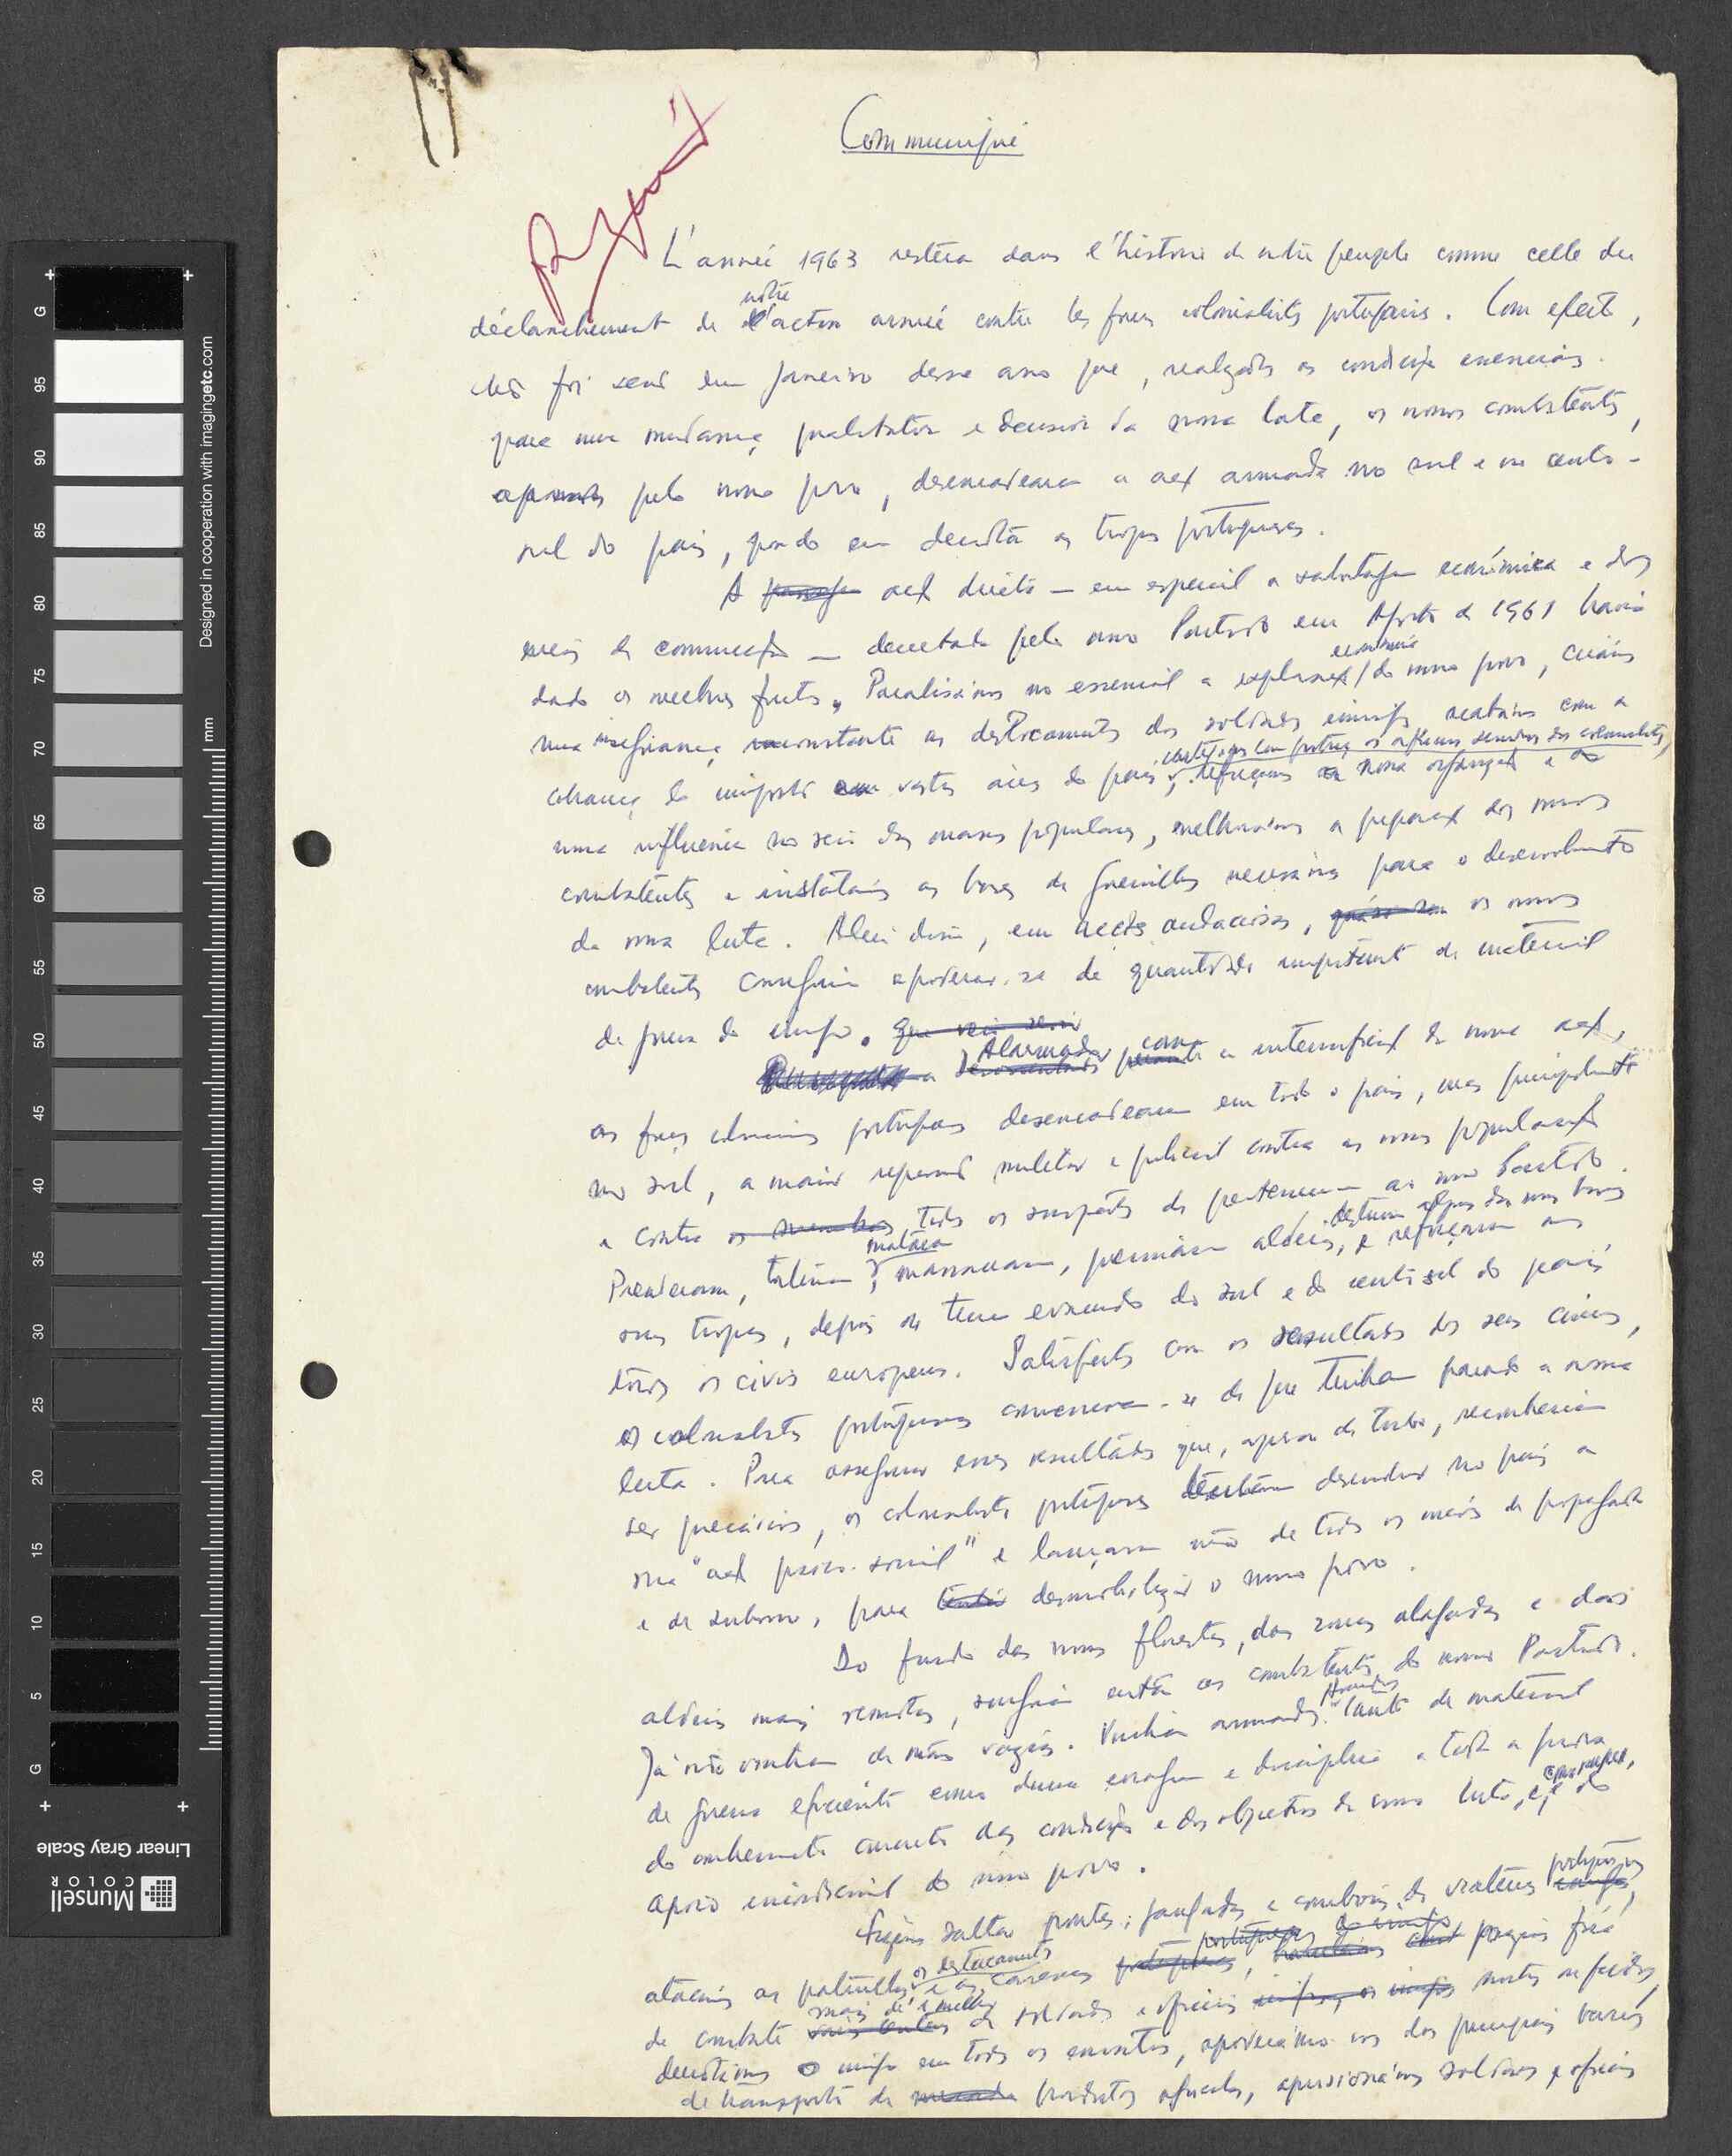 Communiqué
L'année 1963 restera dans l'histoire de notre peuple comme celle du
notre
déclanchement de l'action armée contre les forces colonialistes portugais. Com efeito,
não foi senão em Janeiro desse ano que, realizadas as condições essenciais
para uma mudança qualitativa e decisiva da nossa luta, os nossos combatentes,
apoiados pelo nosso povo, desencadearam a acção armada no sul e no centro-
sul do país, pondo em derrota as tropas portuguesas.
A acção directa — em especial a sabotagem económica e dos
meios de comunicação — decretada pelo nosso Partido em Agosto de 1961 havia
económica
dado os melhores frutos. Paralisámos no essencial a exploração do nosso povo, criámos
uma insegurança constante nos deslocamentos dos soldados inimigos, acabámos com a
os colonialistas,
cobrança do imposto em vastas áreas do país, reforçámos a nossa organização e a
nossa influência no seio das massas populares, melhorámos a preparação dos nossos
combatentes e instalámos as bases de guerrilha necessárias para o desenvolvimento
da nossa luta. Além disso, em acções audaciosas, os nossos
combatentes conseguiram apoderar-se de quantidade importante de material
de guerra do inimigo. Que
Alarmados com
a intensificação da nossa acção,
as forças coloniais portuguesas desencadearam em todo o país, mas principalmente
no sul, a maior repressão militar e policial contra as nossas populações
e contra os membros todos os suspeitos de pertencerem ao nosso Partido.
mataram destruíram algumas das nossas bases
Prenderam, torturam, massacraram, queimaram aldeias, e reforçaram as
suas tropas, depois de terem evacuado do sul e do centro-sul do país
todos os civis europeus. Satisfeitos com os resultados dos seus crimes,
os colonialistas portugueses convenceram-se de que tinham parado a nossa
luta. Para assegurar esses resultados que, apesar de tudo, reconheciam
ser precários, os colonialistas portugueses tentaram desenvolver no país a
sua "acção psico-social" e lançaram mão de todos os meios de propaganda
e de suborno, para tentar desmobilizar o nosso povo.
Do fundo das nossas florestas, das zonas alagadas e das
aldeias mais remotas, surgiram então os combatentes do nosso Partido.
Armados
Já não vinham de mãos vazias. Vinham armados. tanto de material
de guerra eficiente como duma coragem e disciplina a toda a prova
do conhecimento concreto das condições e dos objectivos da nossa luta, e do
apoio incondicional do nosso povo.
portugueses
Fizemos saltar pontes, jangadas e comboios de viaturas
portugueses do inimigo
os destacamentos
atacámos as patrulhas e as casernas portuguesas, pusemos fora
mais de 1 milhar
de combate de soldados e oficiais mortos ou feridos,
derrotámos o inimigo em todos os encontros, apoderámo-nos dos principais barcos
de transporte de produtos agrícolas, aprisionámos soldados e oficiais
G
95
90
85
80
75
70
65
60
55
50
45
40
35
30
25
20
15
10
5
G
mm
Designed in cooperation with imagingetc.com
Linear Gray Scale
Munsell
COLOR